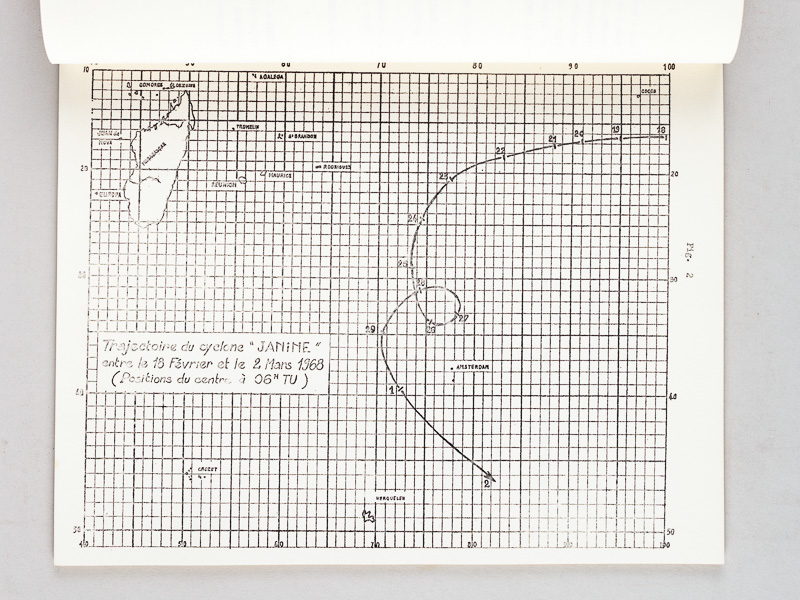 50
60
70
80
90
100
10
AGALEGA
COMORES GLORIEUSE
COCOS
TROMELIN
St BRANDON
NOVA
MADAGASCAR
18
19
20
21
22
RODRIGUES
MAURICE
REUNION
20
20
EUROPA
23
24
25
Fig. 2
30
30
26
27
28
29
Trajectoire du cyclone "JANINE"
entre le 18 Février et le 2 Mars 1968
(Positions du centre à 06H TU)
AMSTERDAM
1
40
CROZET
2
KERGUELEN
50
50
40
50
60
70
80
90
100